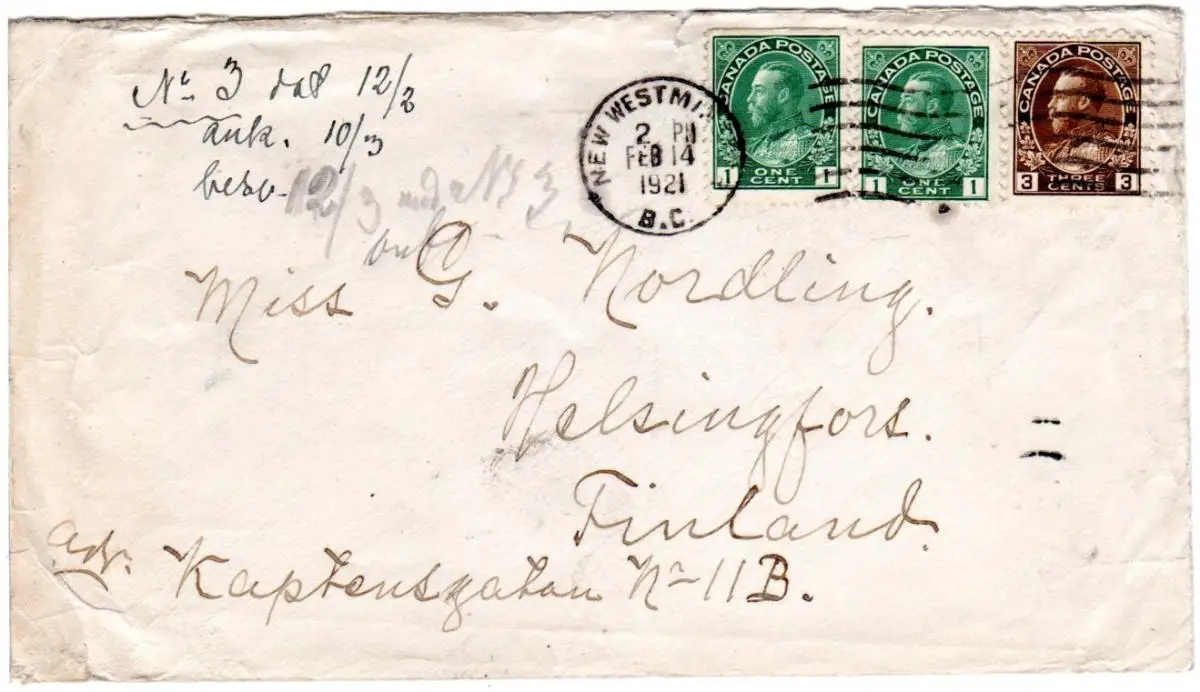 No 3 dat 12/2
ank. 10/3
besv. 12/3 med No 3
NEW WESTMIN
2 PM
FEB 14
1921
B.C.
CANADA POSTAGE
1 ONE CENT 1
CANADA POSTAGE
1 ONE CENT 1
CANADA POSTAGE
3 THREE CENTS 3
Miss G. Nordling.
Helsingfors.
Finland.
adr. Kaptensgatan No 11B.